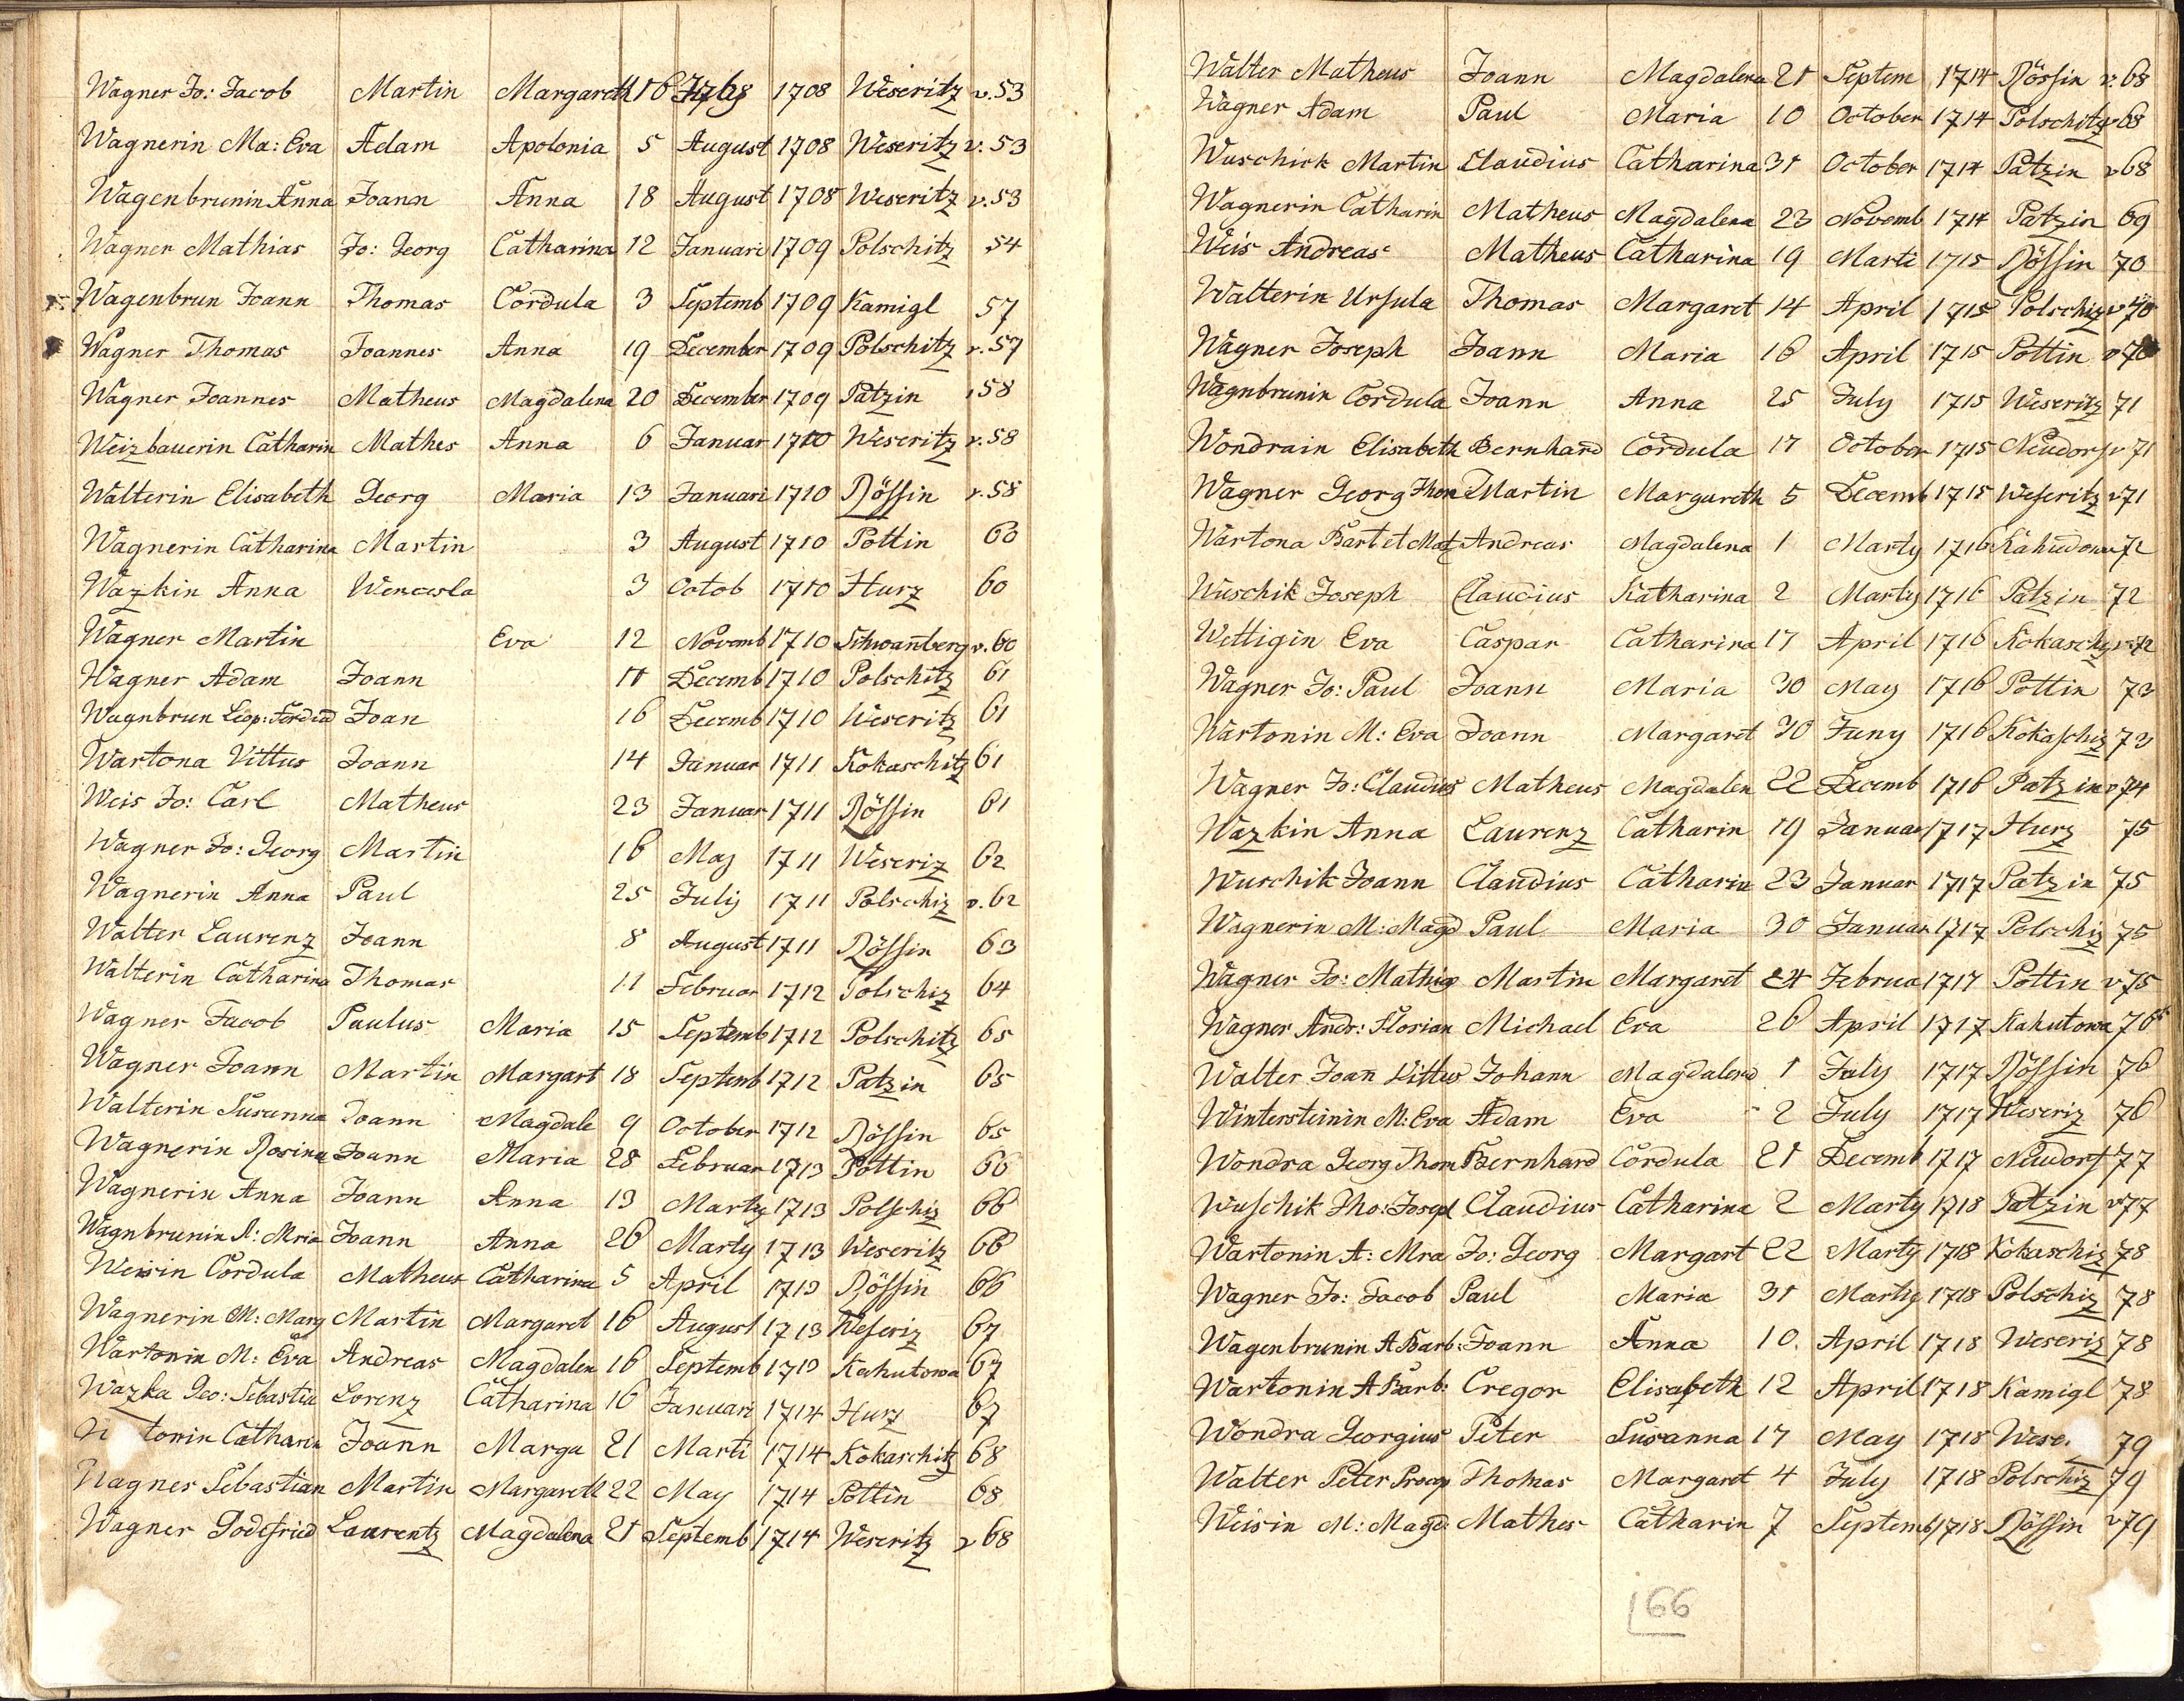 Wagner Jo: Jacob Martin Margareth 16 July 1708 Weseritz v. 53
Wagnerin Ma: Eva Adam Apolonia 5 August 1708 Weseritz v. 53
Wagenbrunin Anna Joann Anna 18 August 1708 Weseritz v. 53
Wagner Mathias Jo: Georg Catharina 12 Januari 1709 Polschitz 54
Wagenbrun Joann Thomas Cordula 3 Septemb 1709 Kamigl 57
Wagner Thomas Joannes Anna 19 December 1709 Polschitz v. 57
Wagner Joannes Matheus Magdalena 20 December 1709 Patzin 58
Weizbauerin Catharin Mathes Anna 6 Januar 1710 Weseritz v. 58
Walterin Elisabeth Georg Maria 13 Januari 1710 Rössin v. 58
Wagnerin Catharina Martin 3 August 1710 Pottin 60
Wazkin Anna Wencesla 3 Octob 1710 Hurz 60
Wagner Martin Eva 12 Novemb 1710 Schwanberg v. 60
Wagner Adam Joann 11 Decemb 1710 Polschitz 61
Wagnbrun Leop: Ferdind Joan 16 Decemb 1710 Weseritz 61
Wartona Vittus Joann 14 Januar 1711 Kokaschitz 61
Weis Jo: Carl Matheus 23 Januar 1711 Rössin 61
Wagner Jo: Georg Martin 16 May 1711 Weseriz 62
Wagnerin Anna Paul 25 July 1711 Polschiz v. 62
Walter Laurenz Joann 8 August 1711 Rössin 63
Walterin Catharina Thomas 11 Februar 1712 Polschiz 64
Wagner Jacob Paulus Maria 15 Septemb 1712 Polschitz 65
Wagner Joann Martin Margart 18 Septemb 1712 Patzin 65
Walterin Susanna Joann Magdale 9 October 1712 Rössin 65
Wagnerin Rosina Joann Maria 28 Februar 1713 Pottin 66
Wagnerin Anna Joann Anna 13 Marty 1713 Polschiz 66
Wagnbrunin A: Mria Joann Anna 26 Marty 1713 Weseritz 66
Weisin Cordula Matheus Catharina 5 April 1713 Rössin 66
Wagnerin M: Marg Martin Margaret 16 August 1713 Weseriz 67
Wartonin M: Eva Andreas Magdalen 16 Septemb 1713 Kahutowa 67
Wazka Geo: Sebastia Lorenz Catharina 16 Januari 1714 Hurz 67
tonin Catharin Joann Marga 21 Marti 1714 Kokaschitz 68
Wagner Sebastian Martin Margareth 22 May 1714 Pottin 68
Wagner Godefried Laurentz Magdalena 21 Septemb 1714 Weseritz v 68
Walter Matheus Joann Magdalena 21 Septem 1714 Rössin v. 68
Wagner Adam Paul Maria 10 October 1714 Polschitz v 68
Wuschick Martin Claudius Catharina 31 October 1714 Patzin v 68
Wagnerin Catharin Matheus Magdalena 23 Novemb 1714 Patzin 69
Weis Andreas Matheus Catharina 19 Marti 1715 Rössin 70
Walterin Ursula Thomas Margaret 14 April 1715 Polschiz v 70
Wagner Joseph Joann Maria 16 April 1715 Pottin v 70
Wagnbrunin Cordula Joann Anna 25 July 1715 Weseritz 71
Wondrain Elisabeth Bernhard Cordula 17 October 1715 Neudorf v 71
Wagner Georg Thom Martin Margareth 5 Decemb 1715 Weseritz v 71
Wartona Bart et Mat Andreas Magdalena 1 Marty 1716 Kahudowa 72
Wuschik Joseph Claudius Katharina 2 Marty 1716 Patzin 72
Wettigin Eva Caspar Catharina 17 April 1716 Kokaschz v 72
Wagner Jo: Paul Joann Maria 30 May 1716 Pottin 73
Wartonin M: Eva Joann Margaret 30 Juny 1716 Kokaschiz 73
Wagner Jo: Claudius Matheus Magdalen 22 Decemb 1716 Patzin v 74
Wazkin Anna Laurenz Catharin 19 Januar 1717 Hurz 75
Wuschik Joann Claudius Catharin 23 Januar 1717 Patzin 75
Wagnerin M: Magd Paul Maria 30 Januar 1717 Polschiz 75
Wagner Jo: Mathig Martin Margaret 24 Februa 1717 Pottin v 75
Wagner Andr: Florian Michael Eva 26 April 1717 Kahutowa 76
Walter Joan Vittus Johann Magdalena 1 July 1717 Rössin 76
Wintersteinin M: Eva Adam Eva 2 July 1717 Weseriz 76
Wondra Georg Thom Bernhard Cordula 21 Decemb 1717 Neudorf 77
Wuschik Tho: Josep Claudius Catharina 2 Marty 1718 Patzin v 77
Wartonin A: Mra Jo: Georg Margart 22 Marty 1718 Kokaschiz 78
Wagner Jo: Jacob Paul Maria 31 Marty 1718 Polschiz 78
Wagenbrunin A Barb: Joann Anna 10. April 1718 Weseriz 78
Wartonin A Barb: Gregor Elisabeth 12 April 1718 Kamigl 78
Wondra Georgius Peter Susanna 17 May 1718 Wese 79
Walter Peter Procop Thomas Margaret 4 July 1718 Polschiz 79
Weisin M: Magd: Mathes Catharin 7 Septemb 1718 Rössin v 79
166